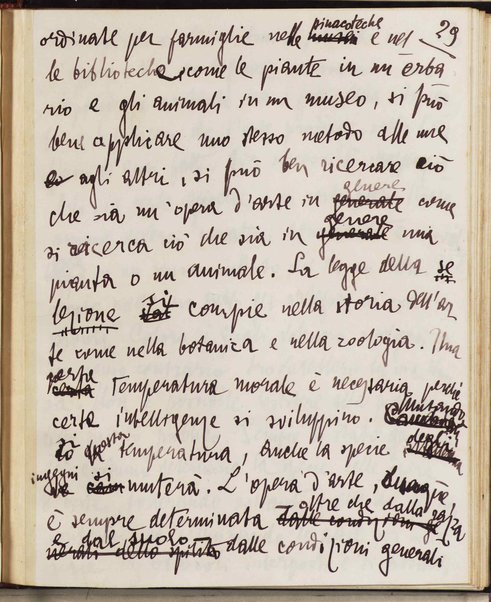 29
ordinate per famiglie nelle pinacoteche musei e nel
le biblioteche, come le piante in un erba
rio e gli animali in un museo, si può
bene applicare uno stesso metodo alle une
e agli altri, si può ben ricercare ciò
che sia un'opera d'arte in generale genere come
si ricerca ciò che sia in generale genere una
pianta o un animale. La legge della se
lezione si compie nella storia dell'ar
te come nella botanica e nella zoologia. Una
certa temperatura morale è necessaria perché
certe intelligenze si sviluppino. Mutando
si questa temperatura, anche la specie degli
ingegni si muterà. L'opera d'arte, dunque
è sempre determinata oltre che dalla razza
e dal suolo dalle condizioni generali